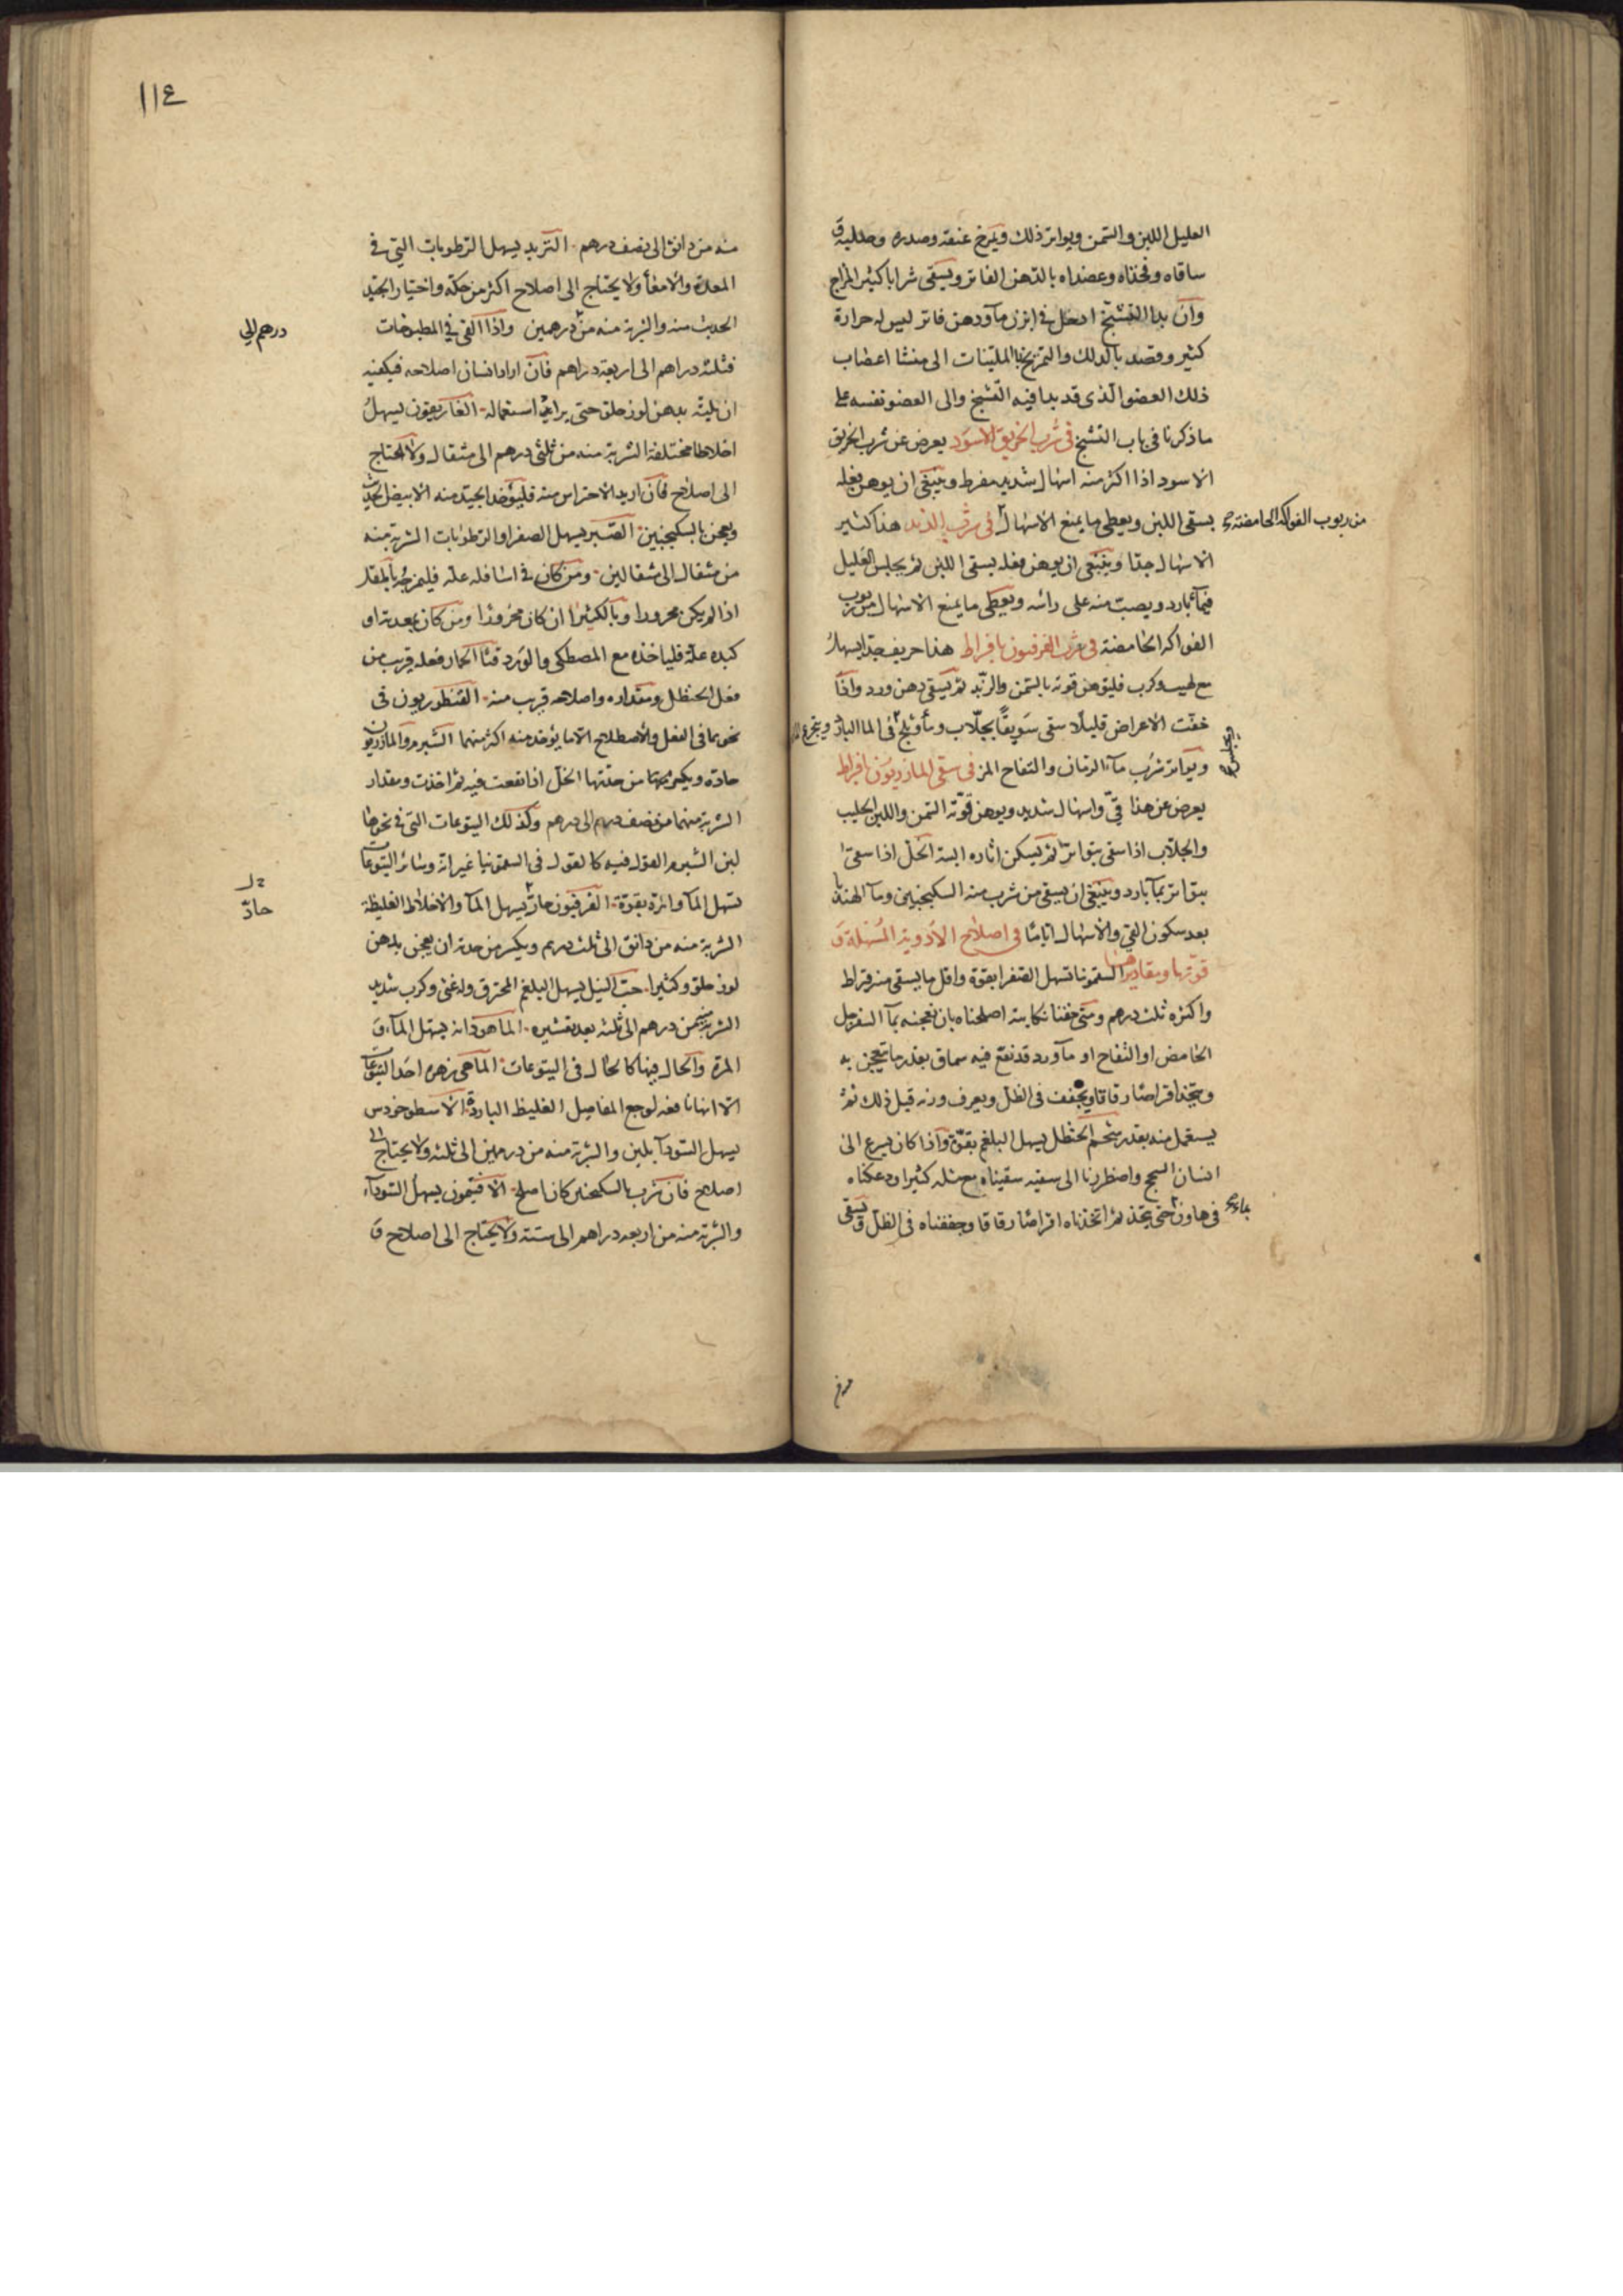 العليل اللبن والسمن ويواتر ذلك ويمرخ عنقه وصدره وصلبه و
ساقاه وفخذاه وعضداه بالدهن الفاتر ويسقى شرابا كثير المزاج
وان بدا التشنج ادخل في ابزن ماء ودهن فاتر ليس له حرارة
كثير وقصد بالدلك والتمريخ بالملينات الى منشا اعصاب
ذلك العضو الذي قد بدا فيه التشنج والى العضو نفسه على
ما ذكرنا في باب التشنج في شرب الخربق الاسود يعرض عن شرب الخربق
الاسود اذا اكثر منه اسهال شديد مفرط وينبغي ان يوهن فعله
بسقى اللبن ويعطى ما يمنع الاسهال في شرب التربد هذا كثير
من ربوب الفواكه الحامضة صح
الاسهال جدا وينبغي ان يوهن فعله بسقى اللبن ثم يجلس العليل
في ماء بارد ويصب منه على راسه ويعطى ما يمنع الاسهال من ربوب
الفواكه الحامضة في شرب الفرفيون بافراط هذا حريف جدا يسهل
مع لهيب وكرب فليوهن قوته بالسمن والزبد ثم يسقى دهن ورد واذا
خفت الاعراض قليلا سقى سويقا بجلاب وماء وثلج في الما البارد ويتجرع
ويجلس صح
ويواتر شرب ماء الرمان والتفاح المز في سقى المازريون بافراط
يعرض عن هذا قيّ واسهال شديد ويوهن قوته السمن واللبن الحليب
والجلاب اذا سقى بتواتر ثم يسكن اثاره البتة الخل اذا سقى
بتواتر بماء بارد وينبغي ان يسقى من شرب منه السكنجبين وماء الهندبا
بعد سكون القي والاسهال اياما في اصلاح الادوية المسهلة و
قوتها ومقاديرها السقمونيا تسهل الصفرا بقوة واقل ما يسقى منه قراط
واكثره ثلث درهم ومتى خفنا نكايته اصلحناه بان نعجنه بماء السفرجل
الحامض او التفاح او ماء ورد قد نقع فيه سماق بقدر ما يتعجن به
ويتخذ اقراصا رقاقا ويجفف في الظل ويعرف وزنه قبل ذلك ثم
يستعمل منه بقدر شحم الحنظل يسهل البلغم بقوة واذا كان يسرع الى
انسان السحج واضطررنا الى سقيه سقيناه مع مثله كثيرا ودعكناه
في هاون حتى يتخذ ثم اتخذناه اقراصا رقاقا وجففناه في الظل ويسقى
بماء صح
١١٤
منه من دانق الى نصف درهم التربد يسهل الرطوبات التي في
المعدة والامعاء ولا يحتاج الى اصلاح اكثر من حكه واختيار الجيد
الحديث منه والشربة منه من درهمين واذا القى في المطبوخات
درهم الى
فثلثه دراهم الى اربعة دراهم فان اراد انسان اصلاحه فيكفيه
ان يلته بدهن لوز حلو حتى يراعى استعماله الغاريقون يسهل
اخلاطا مختلفة الشربة منه من ثلثي درهم الى مثقال ولا يحتاج
الى اصلاح فان اريد الاحتراس منه فليؤخذ الجيد منه الابيض الحديث
ويعجن بالسكنجبين الصبر يسهل الصفرا والرطوبات الشربة منه
من مثقال الى مثقالين ومن كان في اسافله علة فليمزجه بالمقل
اذا لم يكن محرورا وبالكثيرا ان كان محرورا ومن كان بمعدته او
كبده علة فلياخذه مع المصطكى والورد قثا الحمار فعله قريب من
فعل الحنظل ومقداره واصلاحه قريب منه القنطوريون في
نحوهما في الفعل والاصطلاح الا ما يؤخذ منه اكثر منهما الشبرم والمازريون
حادة ويكسر بهما من حدتها الخل اذا نقعت فيه ثم اخذت ومقدار
الشربة منهما من نصف درهم الى درهم وكذلك اليتوعات التي في نحوها
لبن الشبرم القول فيه كالقول في السقمونيا غير انه وسائر اليتوعات
تسهل الماء والمرة بقوة الفرفيون حار يسهل الماء والاخلاط الغليظة
حادّ
الشربة منه من دانق الى ثلث درهم ويكسر من حدته ان يعجن بدهن
لوز حلو وكثيرا حب النيل يسهل البلغم المحترق وله غثى وكرب شديد
الشربة من درهم الى ثلثه بعد تقشيره الماهودانه يسهل الماء و
المرة والحال فيها كالحال في اليتوعات الماهي زهره احد اليتوعات
الا انها نافعه لوجع المفاصل الغليظ الباردة الاسطوخودس
يسهل السوداء بلين والشربة منه من درهمين الى ثلثه ولا يحتاج الى
اصلاح فان شرب بالسكنجبين كان اصلح الافتيمون يسهل السوداء
والشربة منه من اربعه دراهم الى ستة ولا يحتاج الى اصلاح و